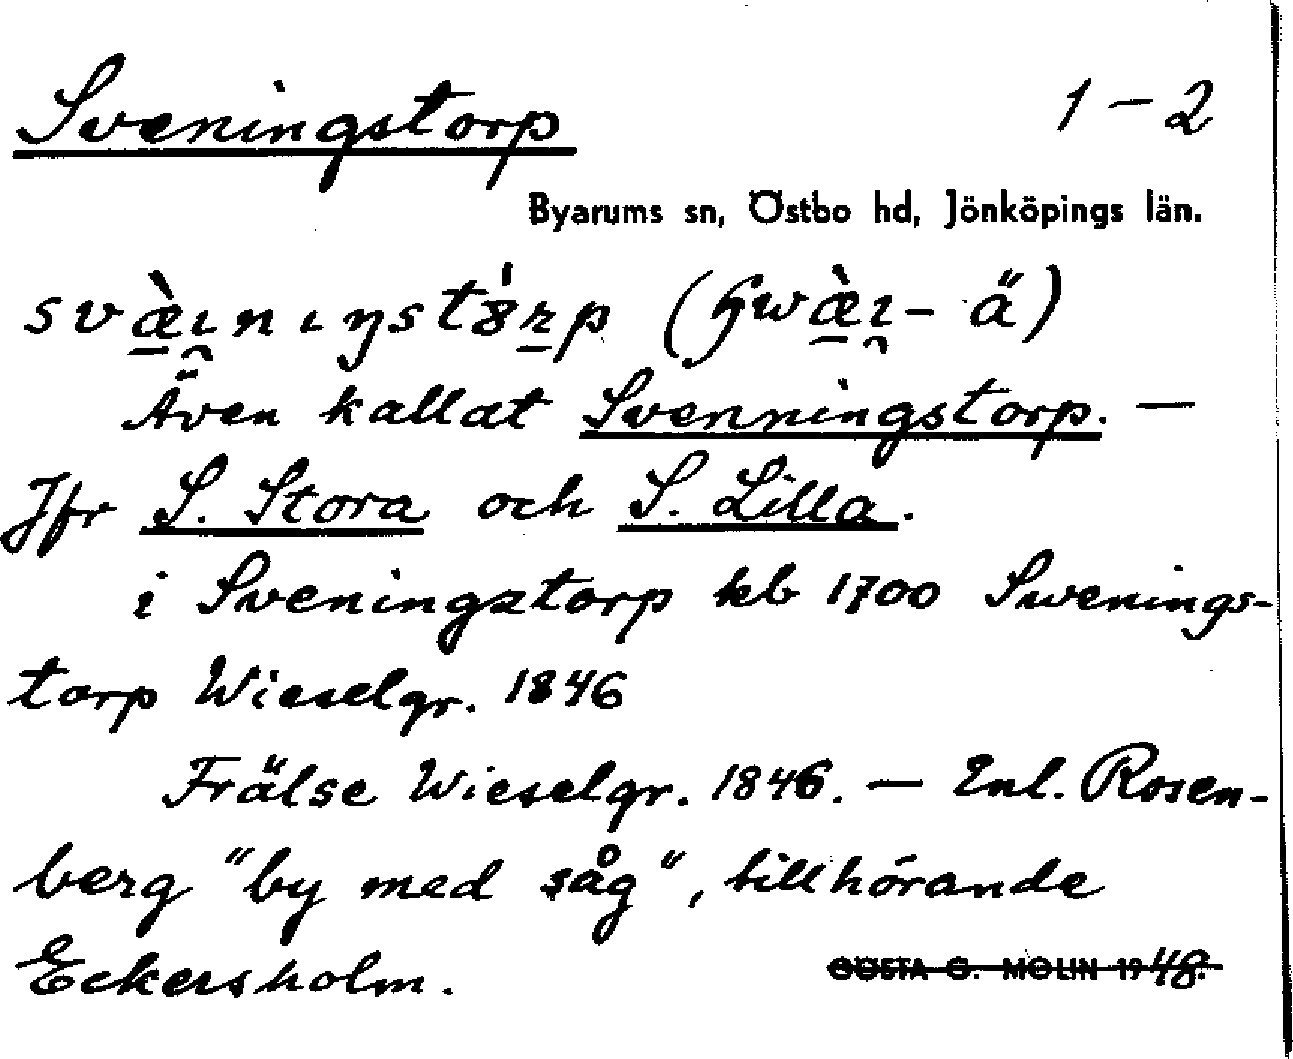 Sveningstorp 1-2
Byarums sn, Östbo hd, Jönköpings län.
svæ̀ɩnɩŋstɔ́rp (ɧwæ̀ɩ- ä)
Även kallat Svenningstorp. —
Jfr S. Stora och S. Lilla.
i Sveningztorp kb 1700 Swenings-
torp Wieselgr. 1846
Frälse Wieselgr. 1846. — Enl. Rosen-
berg "by med såg", tillhörande
Eckersholm.
GÖSTA G. MOLIN 1948.